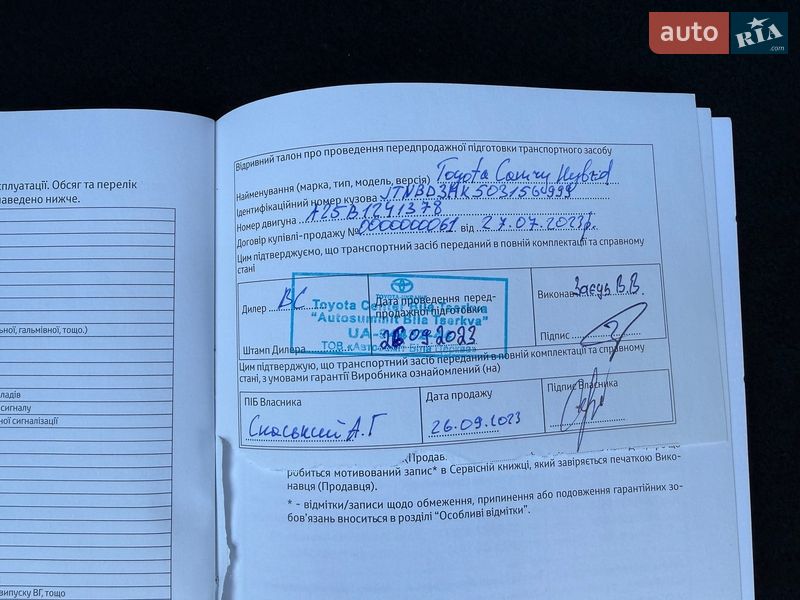 auto RIA.com
сплуатації. Обсяг та перелік
наведено нижче.
ьної, гальмівної, тощо.)
ладів
сигналу
ної сигналізації
випуску ВГ, тощо
Відривний талон про проведення передпродажної підготовки транспортного засобу
Найменування (марка, тип, модель, версія) Toyota Camry Hybrid
Ідентифікаційний номер кузова JTNBD3HK503156999
Номер двигуна A25B1241378
Договір купівлі-продажу № 0000000061 від 27.07.2023р.
Цим підтверджуємо, що транспортний засіб переданий в повній комплектації та справному
стані
Дилер ВС
Дата проведення перед-
продажної підготовки
26.09.2023
Виконавець Заєць В.В.
Toyota Center Bila Tserkva
"Autosummit Bila Tserkva"
Штамп Дилера
Підпис
Цим підтверджую, що транспортний засіб переданий в повній комплектації та справному
стані, з умовами гарантії Виробника ознайомлений (на)
ПІБ Власника
Дата продажу
26.09.2023
Підпис Власника
(Продав.
робиться мотивований запис* в Сервісній книжці, який завіряється печаткою Вико-
навця (Продавця).
* - відмітки/записи щодо обмеження, припинення або подовження гарантійних зо-
бов'язань вноситься в розділі "Особливі відмітки".